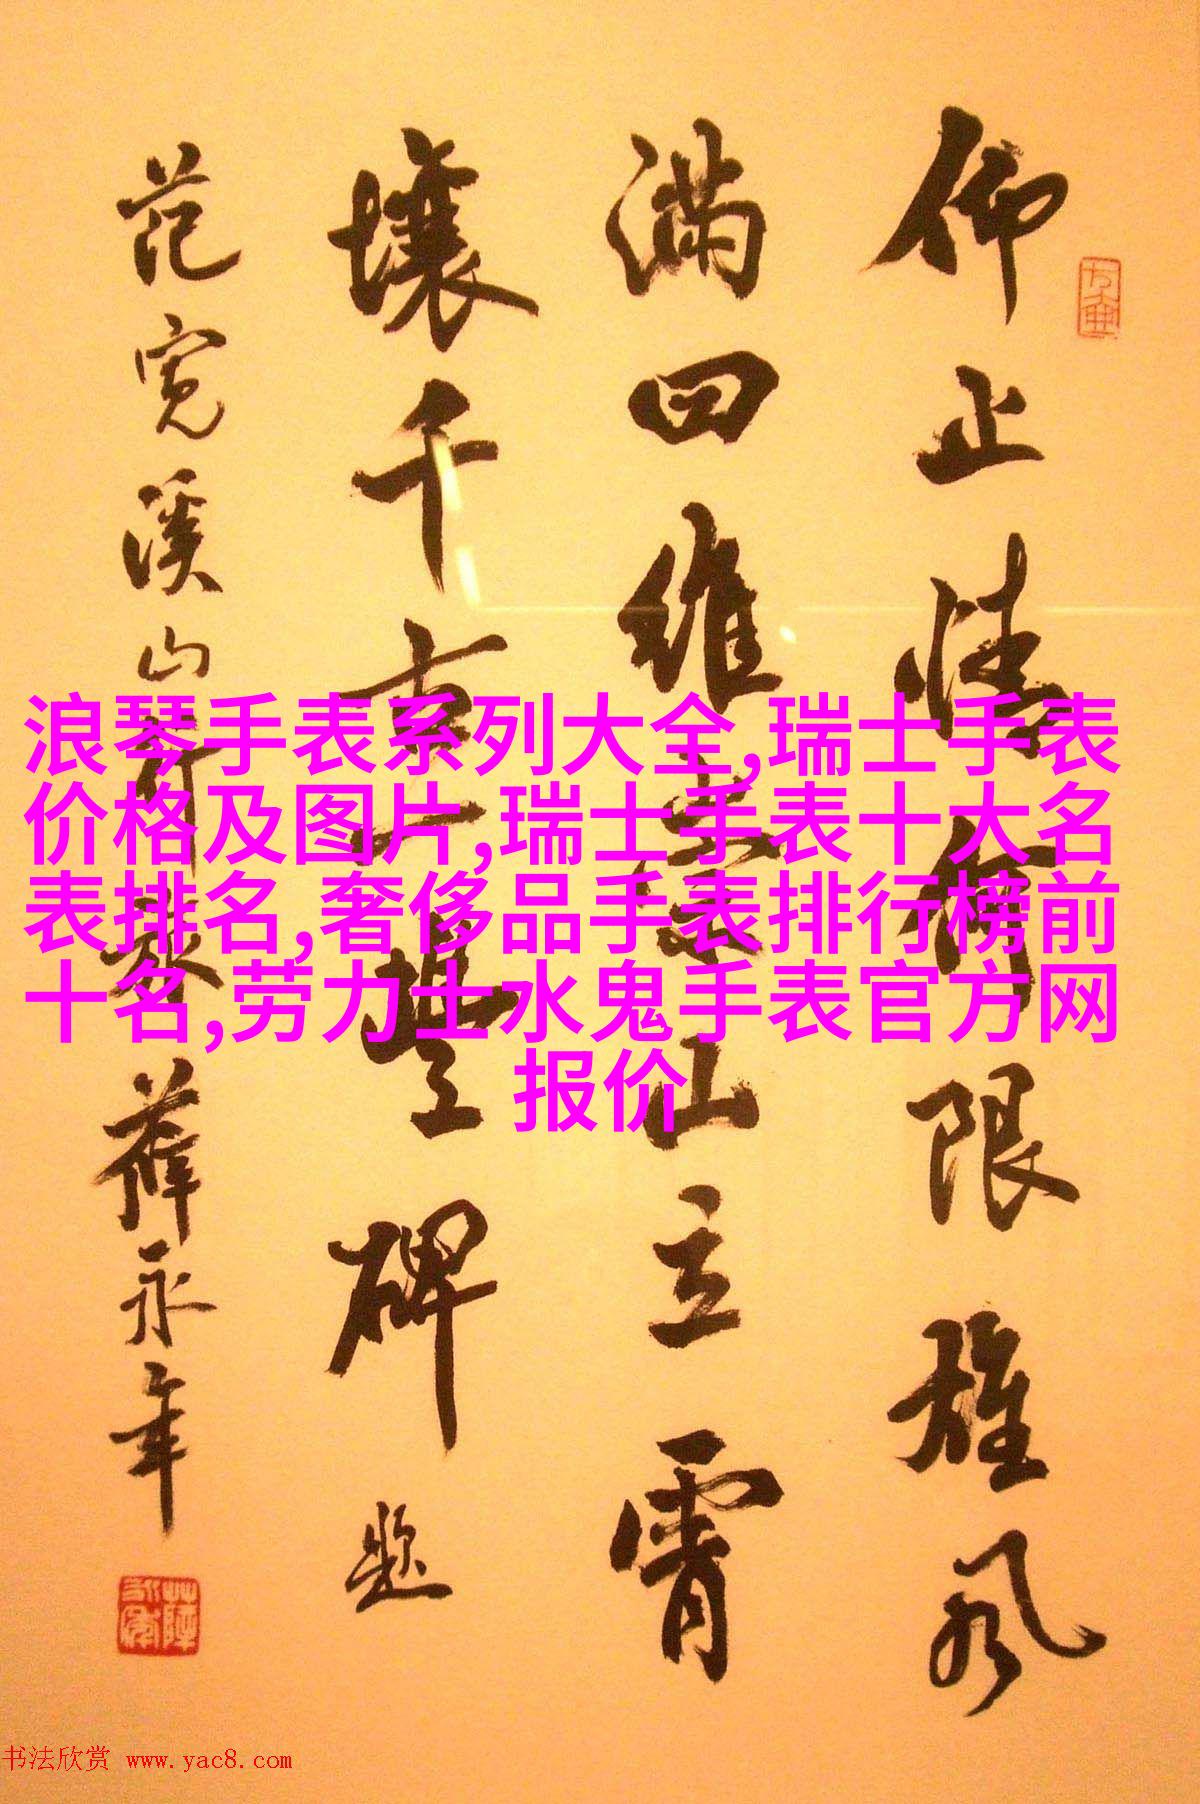 仰止情何限雄风
满四维崇山立霄
壤千重一望碑
题
范宽溪山行旅 薛永年
浪琴手表系列大全,瑞士手表
价格及图片,瑞士手表十大名
表排名,奢侈品手表排行榜前
十名,劳力士水鬼手表官方网
报价
书法欣赏 www.yac8.com